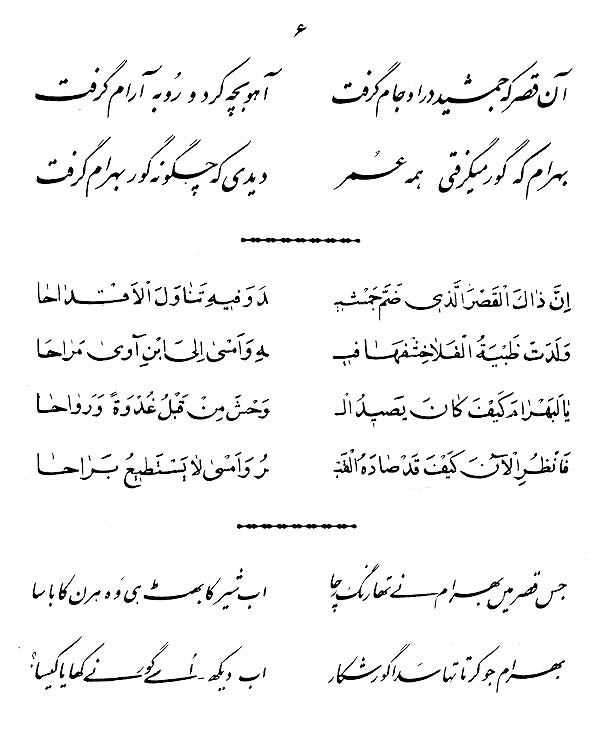 ۶
آن قصر که جمشید در او جام گرفت آهو بچه کرد و روبه آرام گرفت
بهرام که گور میگرفتی همه عمر دیدی که چگونه گور بهرام گرفت
اِنَّ ذاكَ الْقَصْرَ الَّذی ضَمَّ جَمْشیـ ـدَ وَفیهِ تَناوَلَ الْأَقْداحا
وَلَدَتْ ظَبْیَةُ الْفَلا خِشْفَها فیـ ـهِ وَاَمْسی اِلَی ابْنِ آوی مَراحا
یا لَبَهْرامَ کَیْفَ کانَ یَصیدُ الْـ وَحْشَ مِنْ قَبْلُ غُدْوَةً وَرَواحا
فَانْظُرِ الْآنَ کَیْفَ قَدْ صادَهُ الْقَبْـ ـرُ وَاَمْسی لا یَسْتَطیعُ بَراحا
جس قصر میں بهرام نے تھا رنگ رچا اب شیر کا بھٹ ہی وہ ہرن کا باسا
بهرام جو کرتا تھا سدا گور شکار اب دیکھ۔ اُسے گور نے کھایا کیسا؟